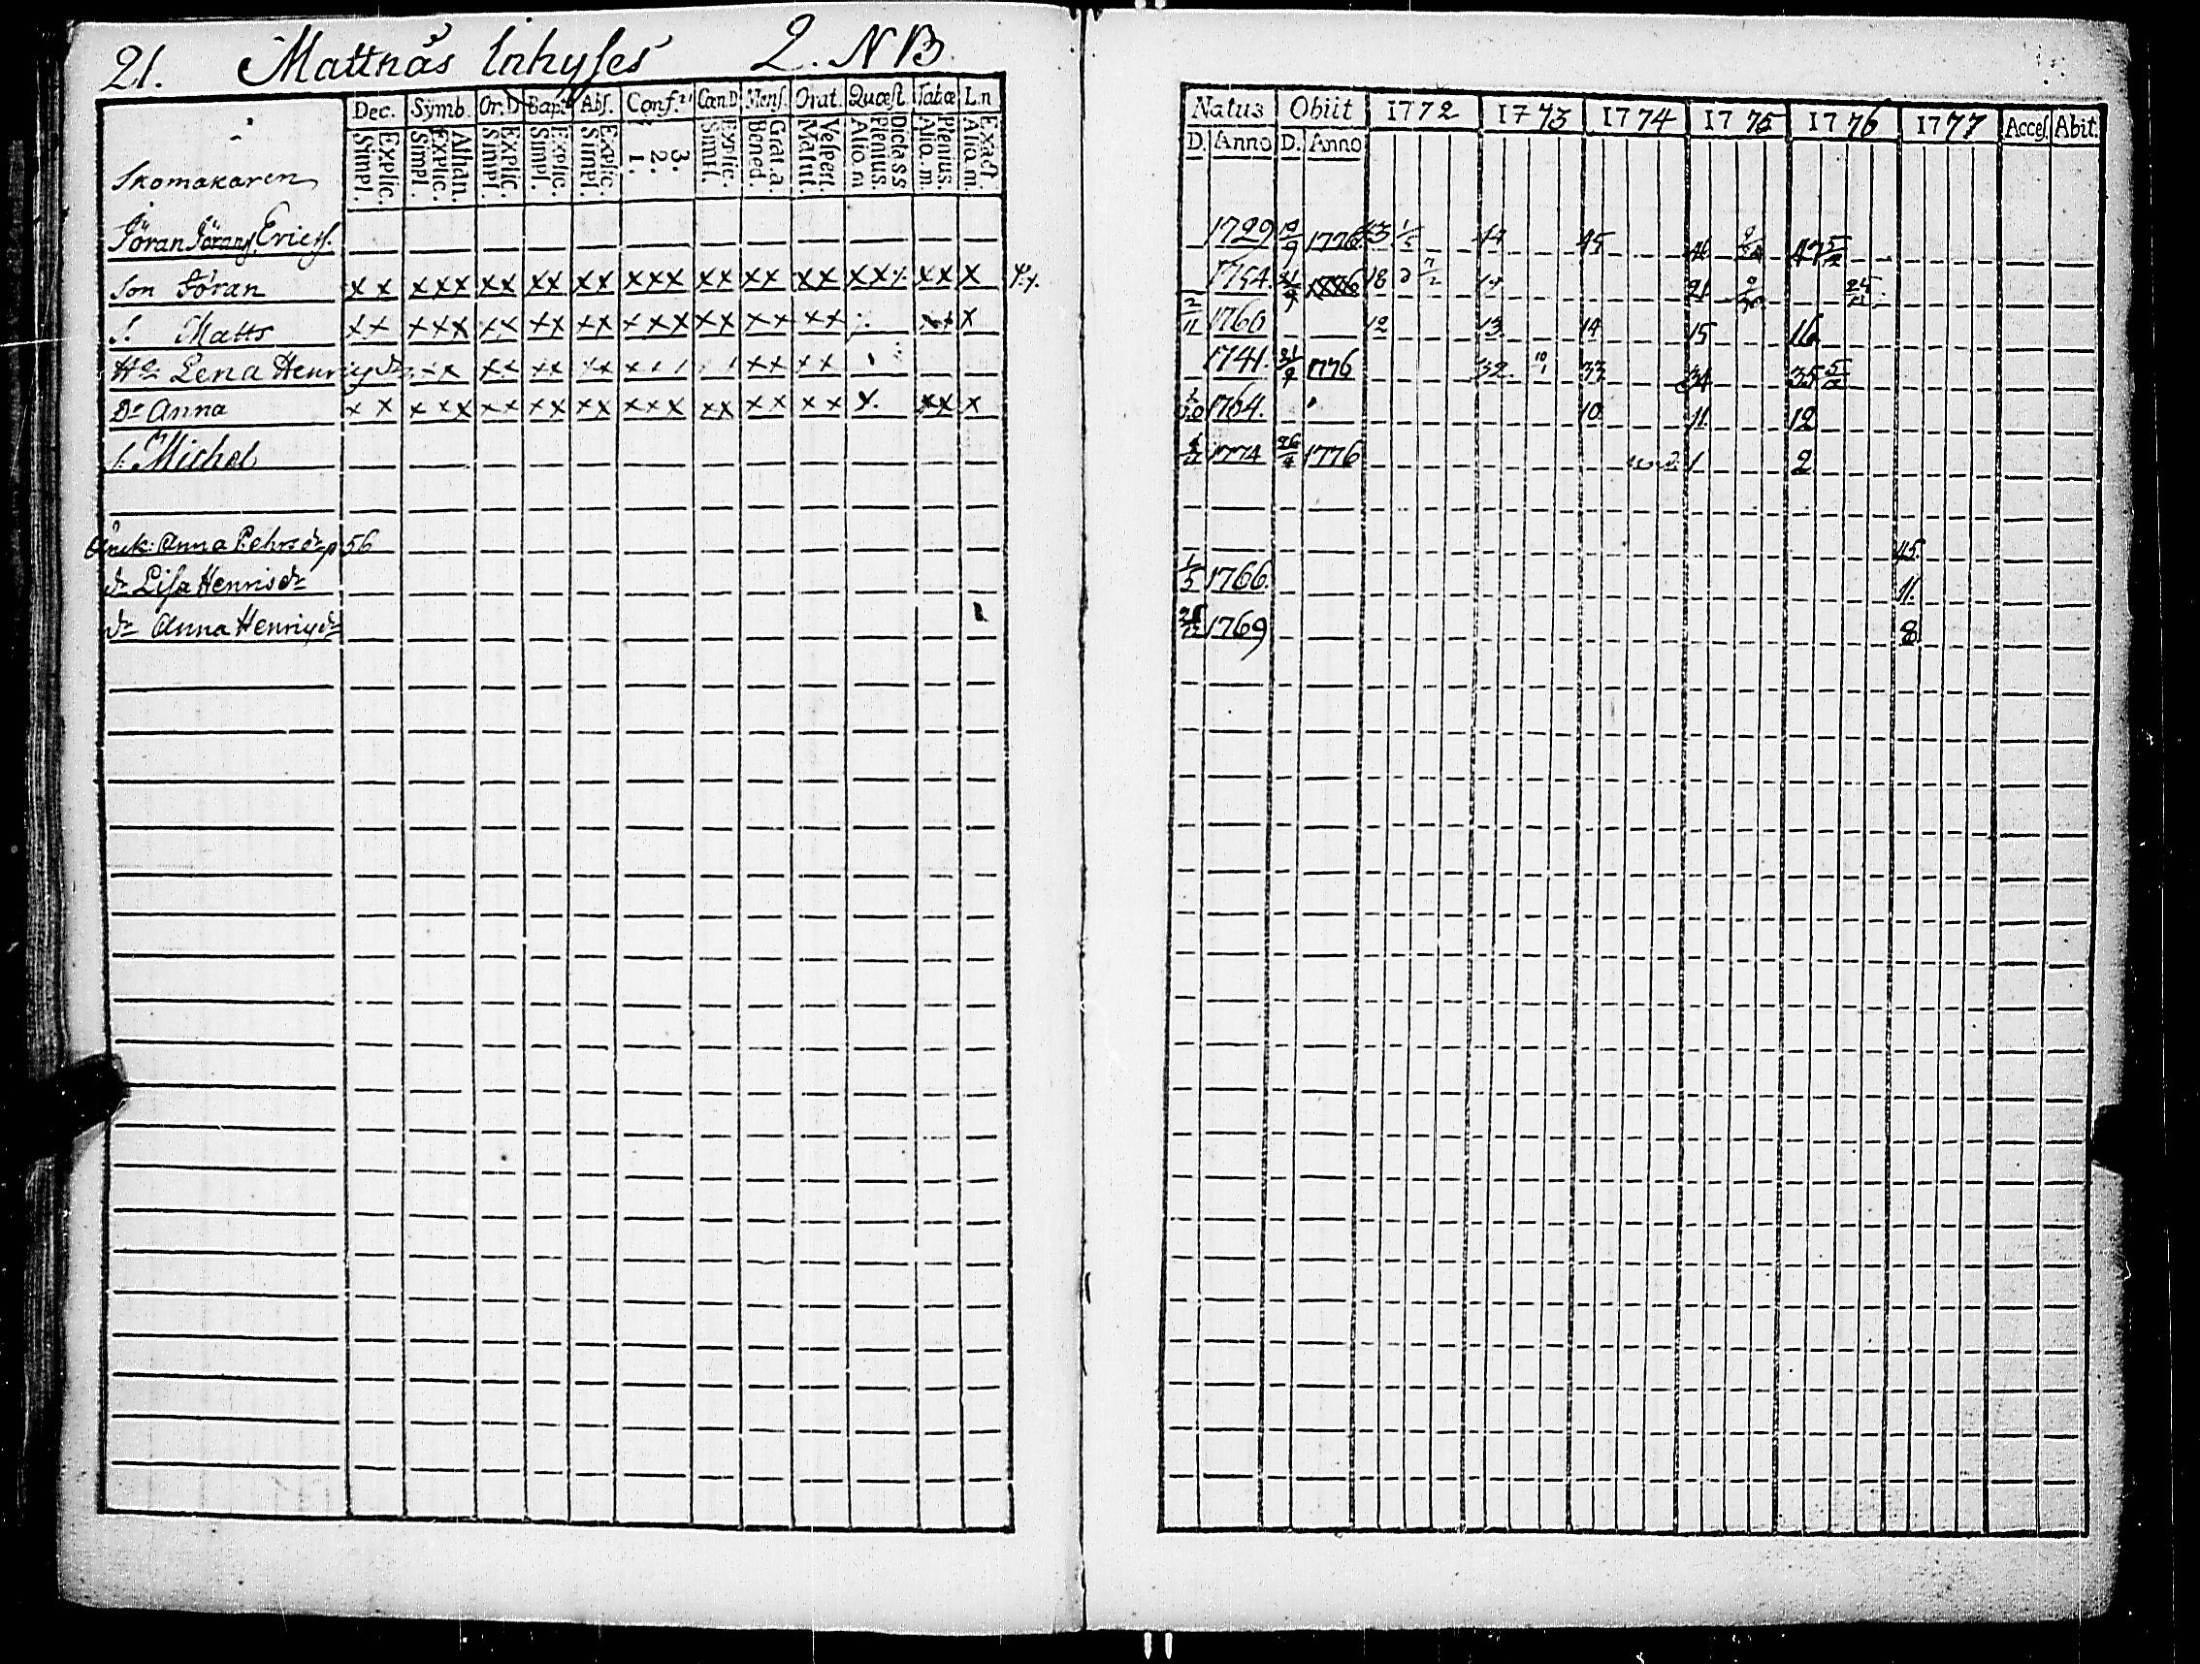 21. Mattnäs Inhyses 2. NB.
Dec. Symb. Or.D. Bapt. Abs. Conf. CœnD. Mens. Orat. Quæst. Tabœ L.n
Simpl. Explic. Simpl. Explic. Athan. Simpl. Explic. Simpl. Explic. Simpl. Explic. 1. 2. 3. Simpl. Explic. Bened. Grat.a. Matut. Vespert. Alio.m Plenius. Dicta ss Alio.m. Plenius. Alia.m. Exact.
Skomakaren
Jöran Jörans. Ericss.
Son Jöran x x x x x x x x x x x x x x x x x x x x x x x x x
S. Matts x x x x x x x x x x x x x x x x x x x x x x
Lena Henricsdr
Dr Anna x x x x x x x x x x x x x x x x x x x x x x x
s. Michel
Änk: Anna Pehrsdr 56
dr Lisa Henrisdr
dr Anna Henricsdr
Natus Obiit 1772 1773 1774 1775 1776 1777 Acces. Abit.
D. Anno D. Anno
1729 1776 43 44 45 46 47 5/12
1754. 1776 18 21
2/11 1760 12 13 14 15 16
1741. 1776 32 10/1 33 34 35
1764. 10 11 12
1774 26/4 1776 1 2
45.
1/5 1766. 11.
1769 8.